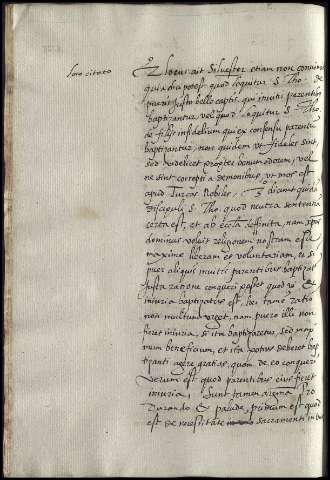 loco citato
ait Silvester etiam non
quia dici potest quod loquitur S. Tho. de
pueris justo bello captis, qui invitis parentibus
baptizantur vel quod loquitur S. Tho.
de filijs infidelium qui ex consensu parentum
baptizantur, non quidem ut fideles sint,
sed videlicet propter bonum odorem, vel
ne sint correpti a demonibus, ut mos est
apud Turcas Nobiles. dicunt quidam
discipuli S. Tho. quod neutra sententia
certa est, et ab eccla. definita, nam
dominus voluit religionem nostram esse
maxime liberam et voluntariam, et si
puer aliquis invitis parentibus baptizatus
justa ratione conqueri posset quod
injuria baptizatus est. haec tamen ratio
non multum urget, nam puero illi non
fieret injuria, si ita baptizaretur, sed maximum
beneficium, et ita potius deberet
agere gratias, quam de eo conqueri
verum est quod parentibus eius fieret
injuria, sunt tamen argum. pro
Durando et palude, primum est quod
est de necessitate sacramenti